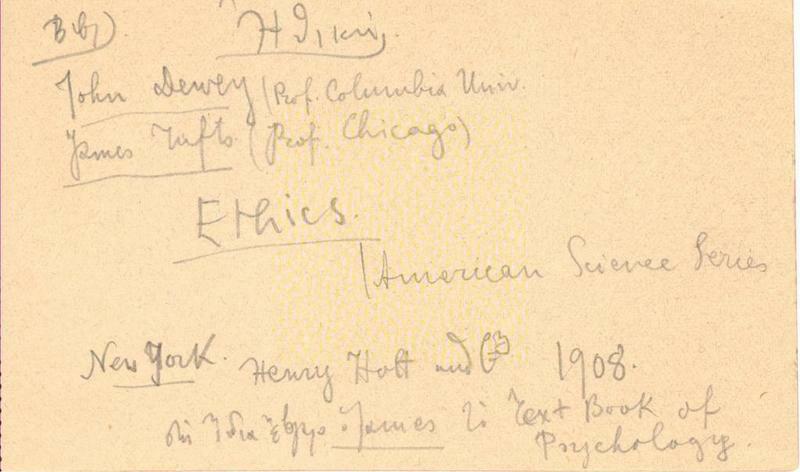 Ἠθική
John Dewey (Prof. Columbia Univ.
James Tufts (Prof. Chicago)
Ethics.
(American Science Series
New York. Henry Holt and 1908.
James Text Book of
Psychology.